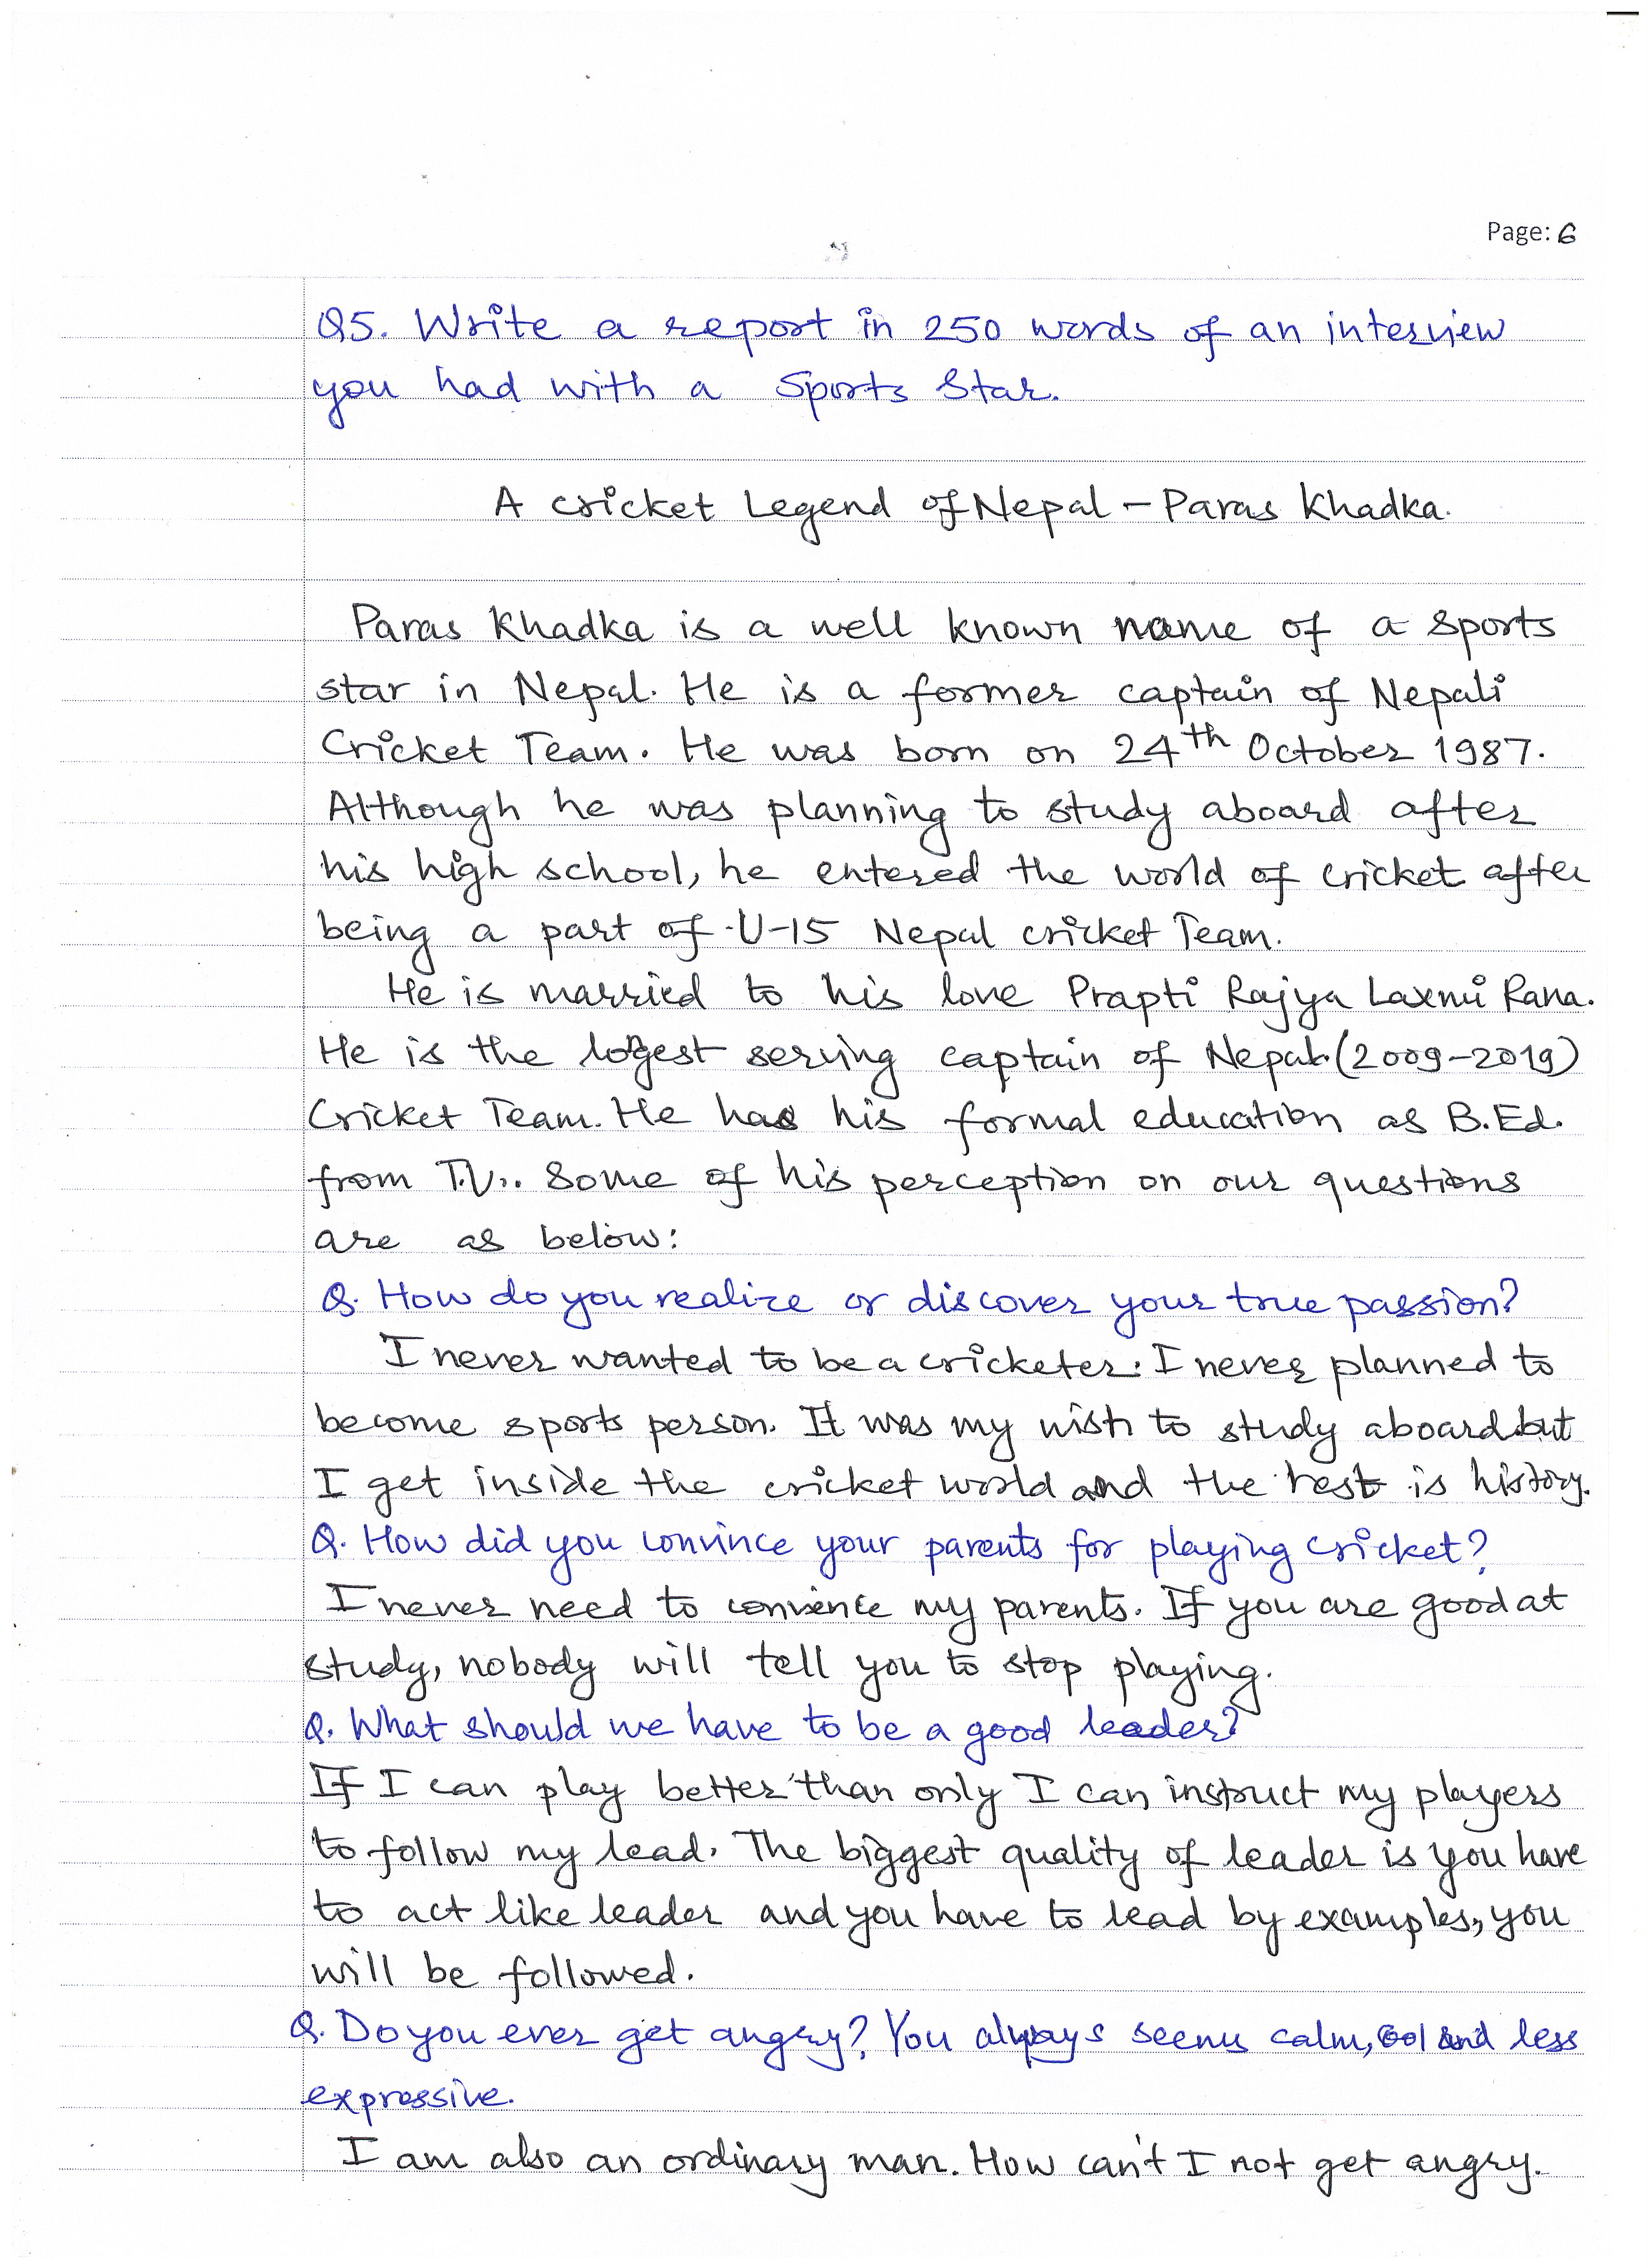 Page: 6
Q5. Write a report in 250 words of an interview
you had with a Sports Star.
A cricket Legend of Nepal - Paras Khadka.
Paras Khadka is a well known name of a sports
star in Nepal. He is a former captain of Nepali
Cricket Team. He was born on 24th October 1987.
Although he was planning to study aboard after
his high school, he entered the world of cricket after
being a part of U-15 Nepal cricket Team.
He is married to his love Prapti Rajya Laxmi Rana.
He is the logest serving captain of Nepal (2009-2019)
Cricket Team. He has his formal education as B.Ed.
from T.U.. Some of his perception on our questions
are as below:
Q. How do you realize or discover your true passion?
I never wanted to be a cricketer. I never planned to
become sports person. It was my wish to study aboard but
I get inside the cricket world and the rest is history.
Q. How did you convince your parents for playing cricket?
I never need to convience my parents. If you are good at
study, nobody will tell you to stop playing.
Q. What should we have to be a good leader?
If I can play better than only I can instruct my players
to follow my lead. The biggest quality of leader is you have
to act like leader and you have to lead by examples, you
will be followed.
Q. Do you ever get angry? You always seems calm, cool and less
expressive.
I am also an ordinary man. How can't I not get angry.